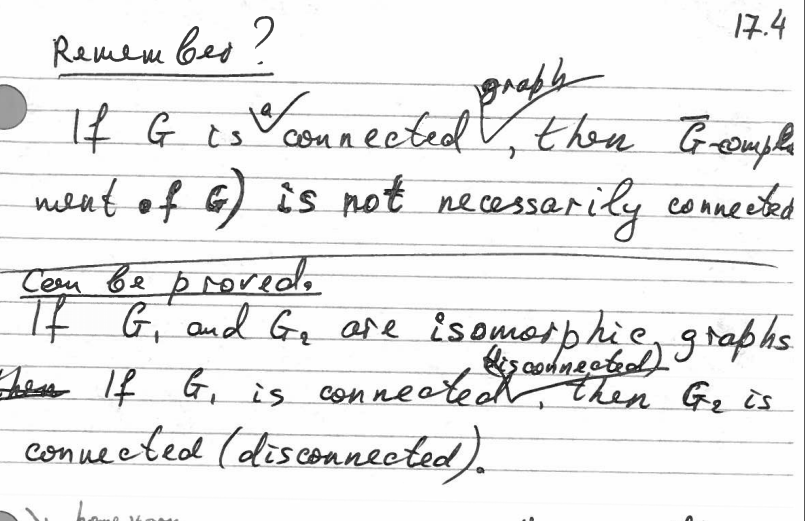 17.4
Remember?
If G is a connected graph, then G̅-comple
ment of G) is not necessarily connected
Can be proved.
If G₁ and G₂ are isomorphic, graphs
then If G₁ is connected (disconnected), then G₂ is
connected (disconnected).